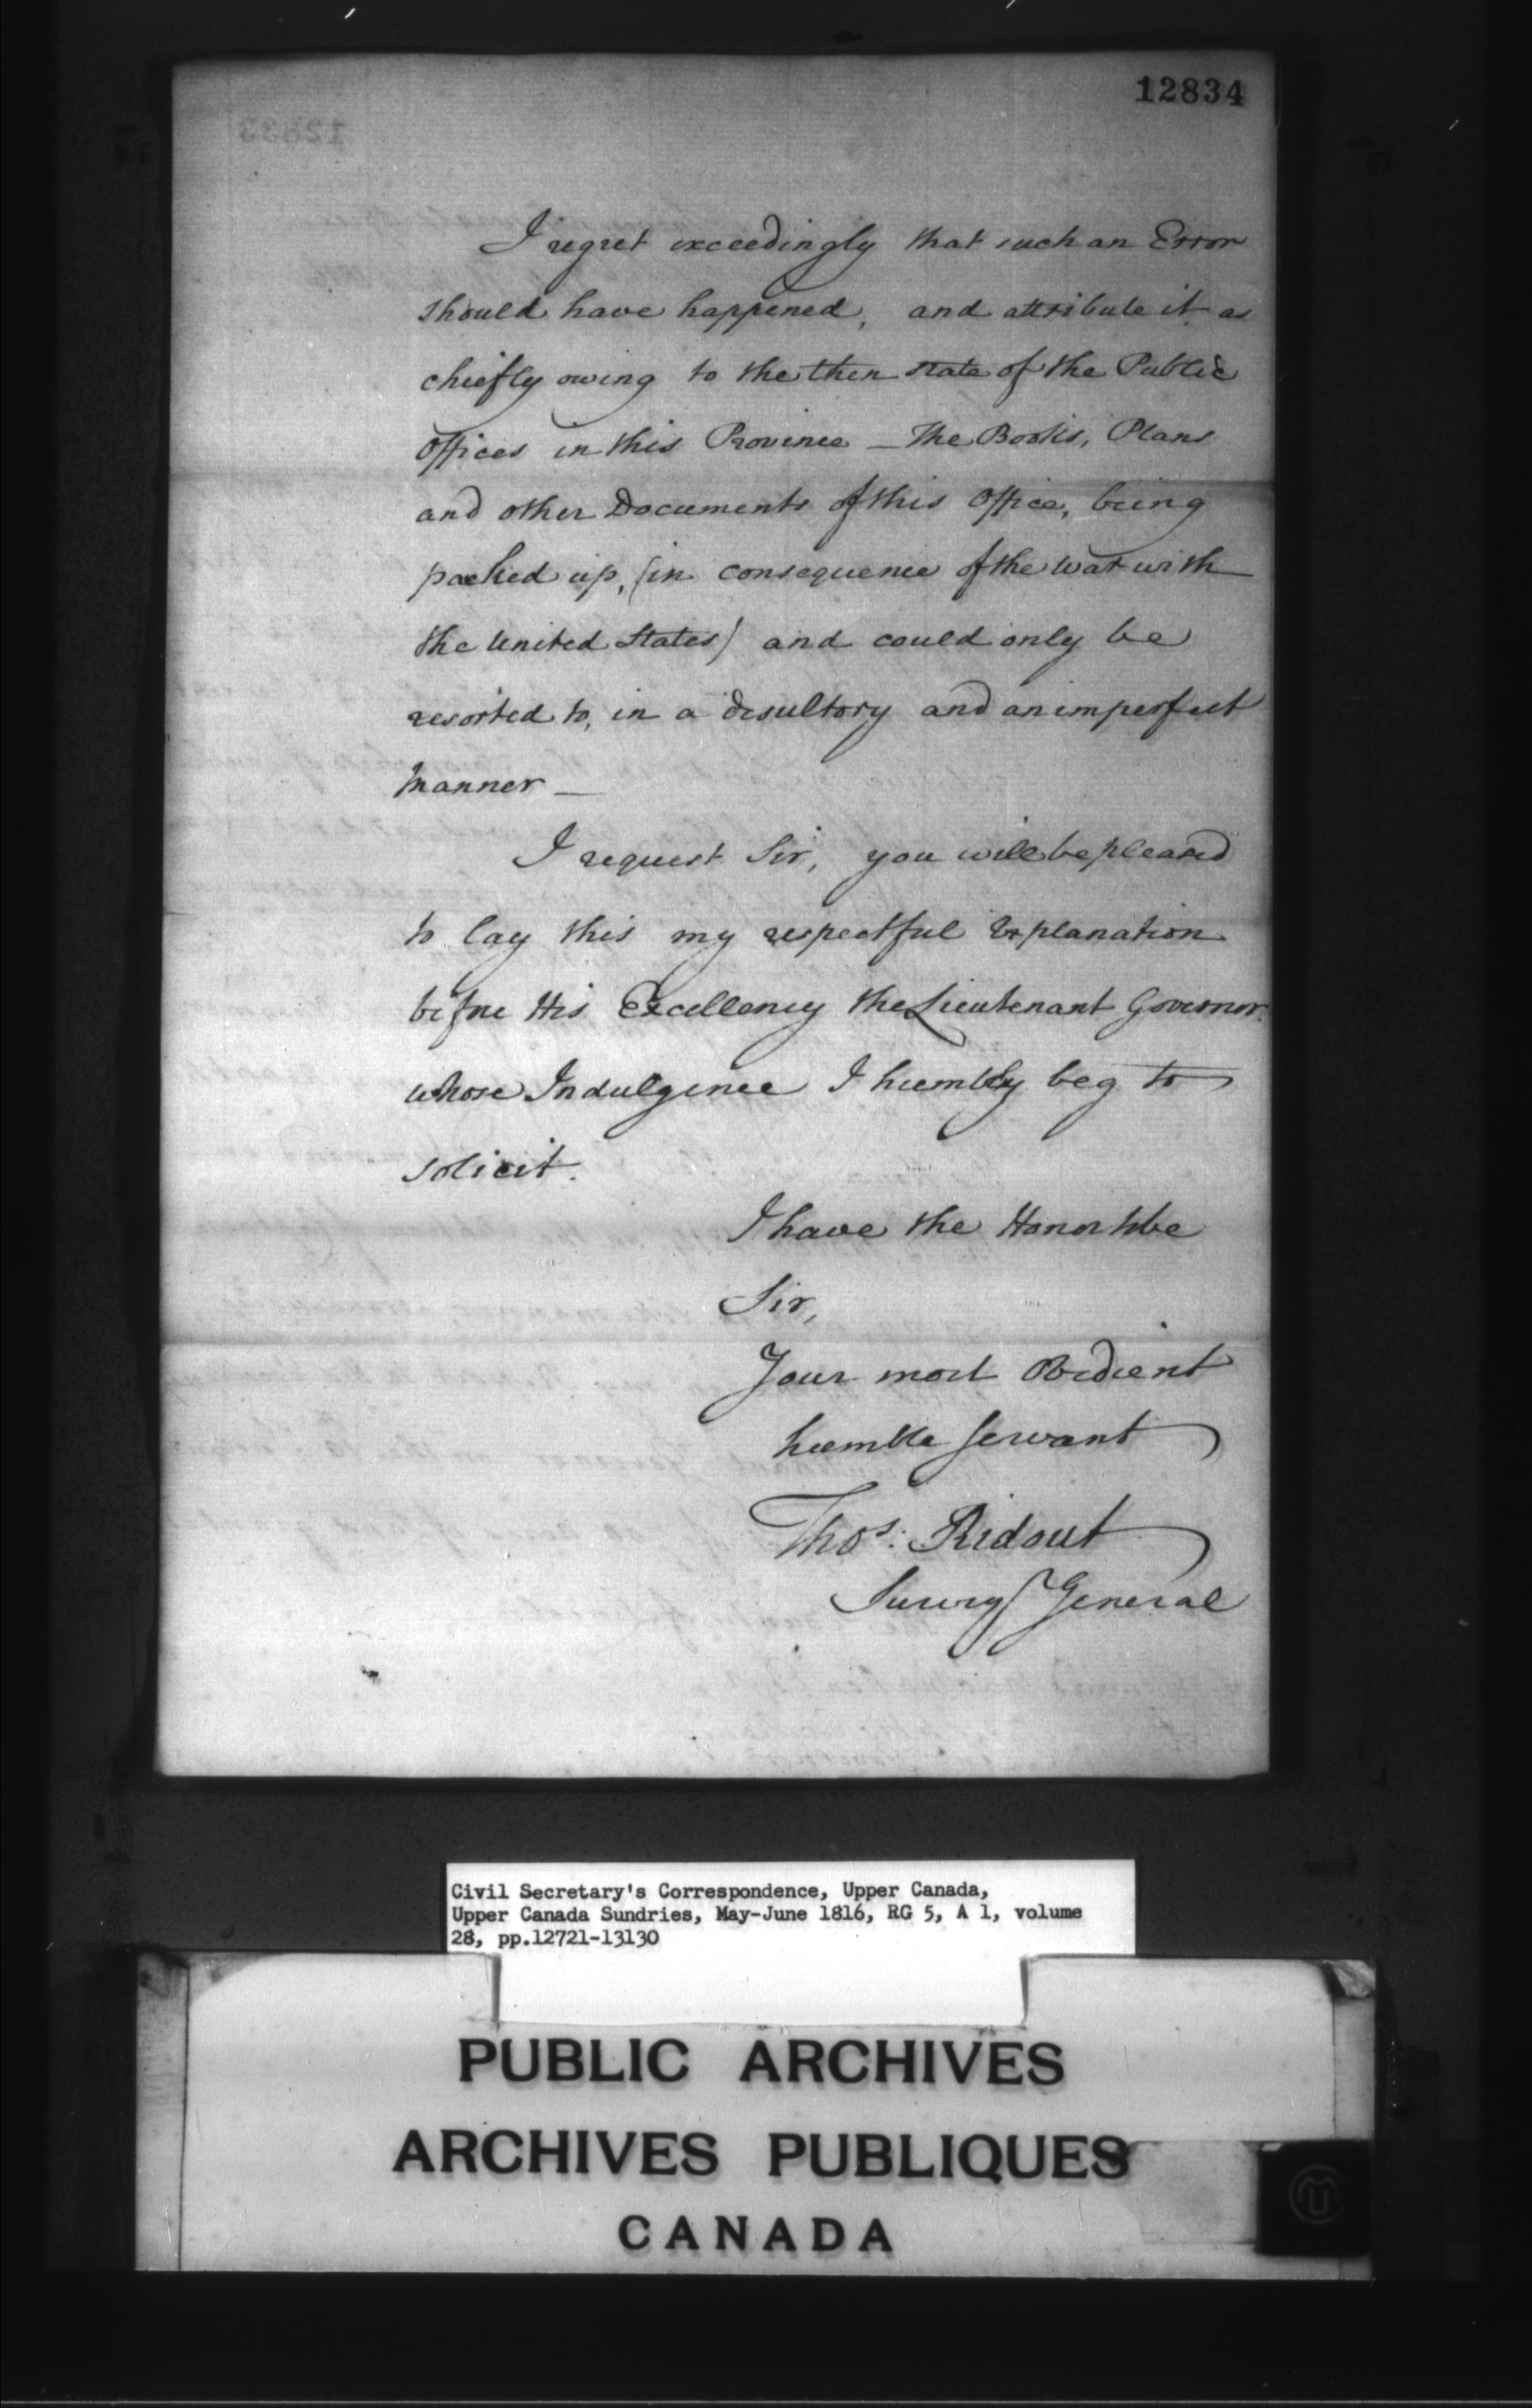 12834
I regret exceedingly that such an Error
should have happened, and attribute it as
chiefly owing to the then state of the Public
Offices in this Province – The Books, Plans
and other Documents of this Office, being
packed up, (in consequence of the War with
the United States) and could only be
resorted to, in a desultory and an imperfect
manner –
I request Sir, you will be pleased
to lay this my respectful Explanation
before His Excellency the Lieutenant Governor.
whose Indulgence I humbly beg to
solicit.
I have the Honor to be
Sir,
Your most Obedient
humble Servant
Thos. Ridout
Survey General
Civil Secretary's Correspondence, Upper Canada,
Upper Canada Sundries, May-June 1816, RG 5, A 1, volume
28, pp.12721-13130
PUBLIC ARCHIVES
ARCHIVES PUBLIQUES
CANADA